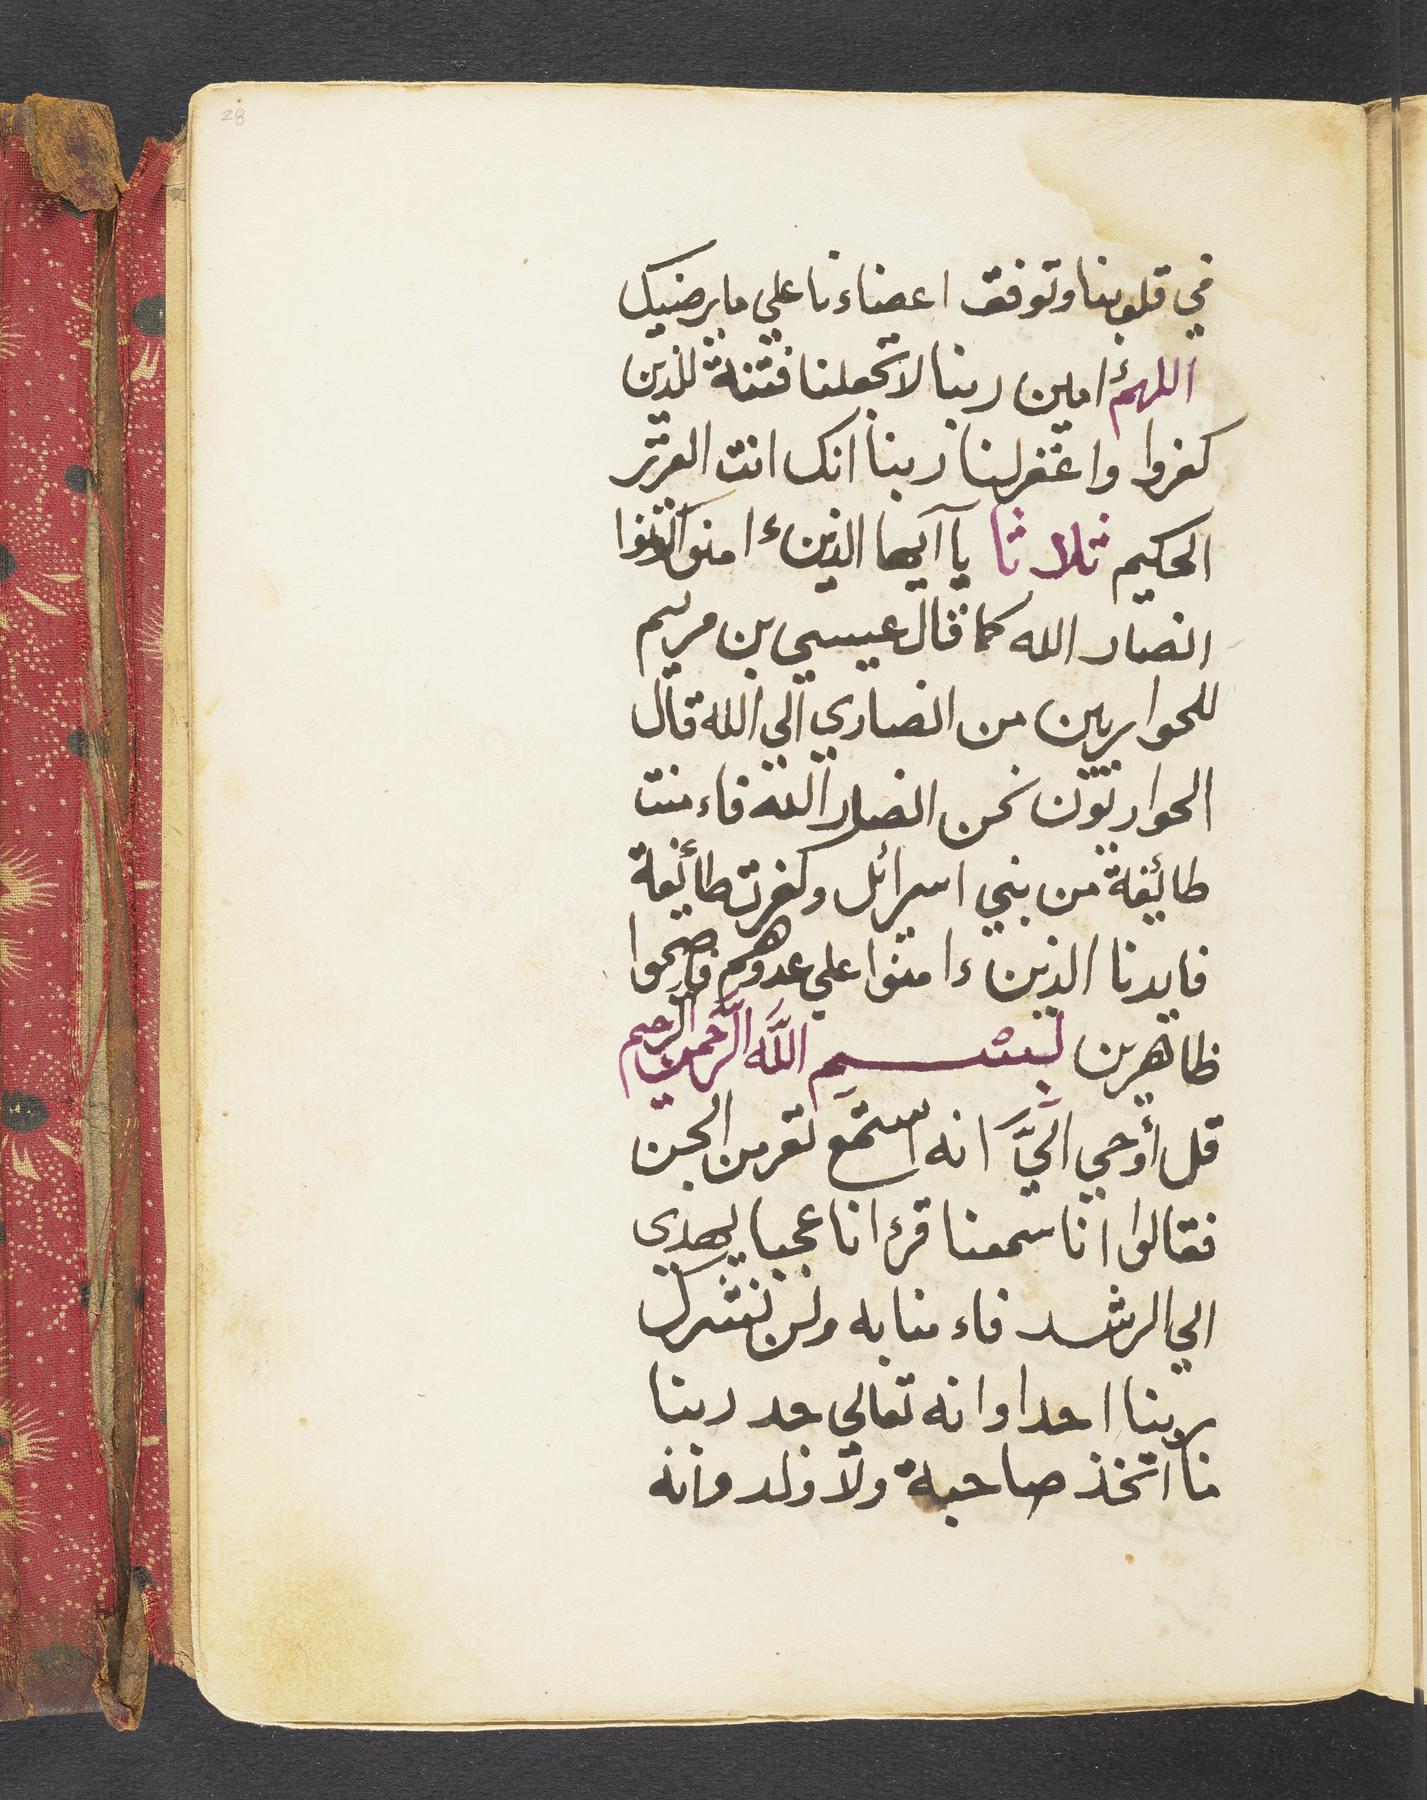 28
في قلوبنا وتوفق اعضاءنا علي ما يرضيك
اللهم ءامين ربنا لا تجعلنا فتنة للذين
كفروا واغفر لنا ربنا انك انت العزيز
الحكيم ثلاثا يا آيها الذين ءامنوا كونوا
انصار الله كما قال عيسي بن مريم
للحواريين من انصاري الي الله قال
الحواريون نحن انصار الله فاءمنت
طائفة من بني اسرائل وكفرت طائفة
فايدنا الذين ءامنوا علي عدوهم فاصبحوا
ظاهرين بسم الله الرحمن الرحيم
قل أوحي اليَّ انه استمع نفر من الجن
فقالوا انا سمعنا قرءانا عجبا يهدي
الي الرشد فاءمنا به ولن نشرك
بربنا احدا وانه تعالي جد ربنا
ما اتخذ صاحبة ولا ولد وانه